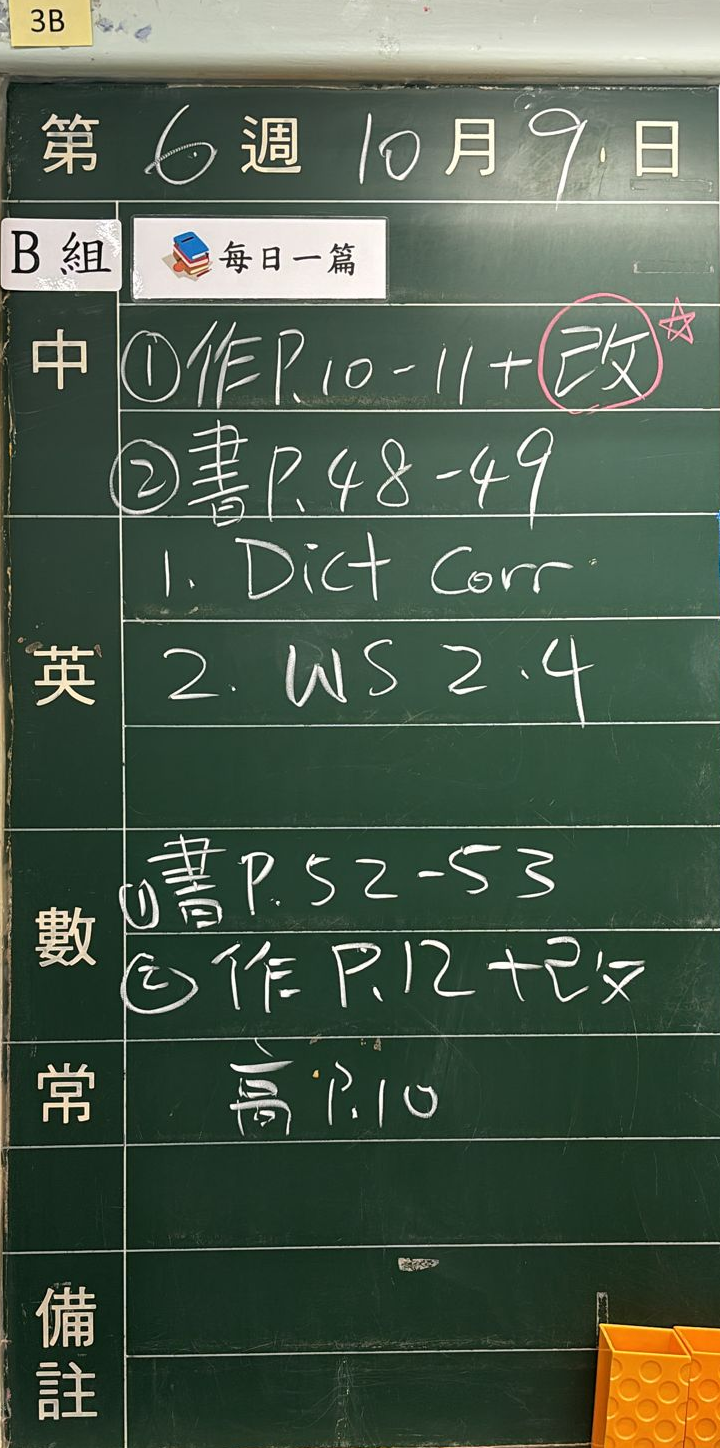 3B
第 6 週 10 月 9 日
B 組 每日一篇
中 ①作P.10-11+改
②書P.48-49
英 1. Dict Corr
2. WS 2.4
數 ①書P.52-53
② 作 P.12 +改
常 高 P.10
備註